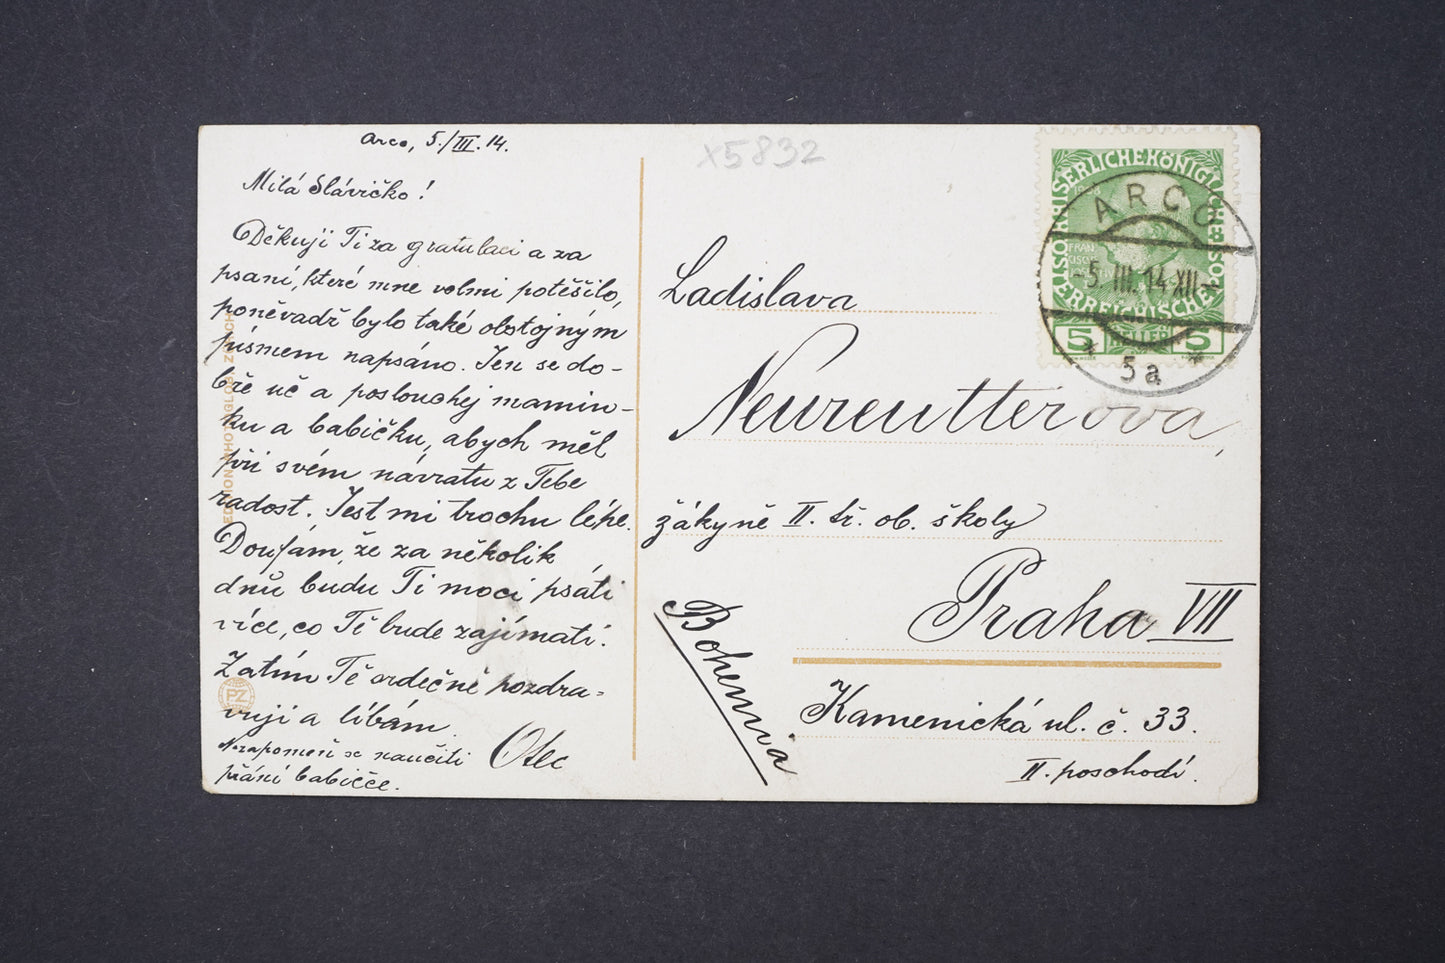 Arco, 5./III.14.
Milá Slávičko!
Děkuji Ti za gratulaci a za
psaní, které mne velmi potěšilo,
poněvadž bylo také obstojným
písmem napsáno. Jen se do-
bře uč a poslouchej mamin-
ku a babičku, abych měl
při svém návratu z Tebe
radost. Jest mi trochu lépe.
Doufám, že za několik
dnů budu Ti moci psáti
více, co Tě bude zajímati.
Zatím Tě srdečně pozdra-
vuji a líbám
Otec
Nezapomeň se naučiti
přání babičce.
PZ
x5832
KAISERLICHE KÖNIGLICHE
ÖSTERREICHISCHE
5 HELLER 5
ARCO
-5.III.14.XII-
* 5a *
Ladislava
Neureutterova,
žákyně II. tř. ob. školy
Praha VII
Bohemia
Kamenická ul. č. 33.
II. poschodí.